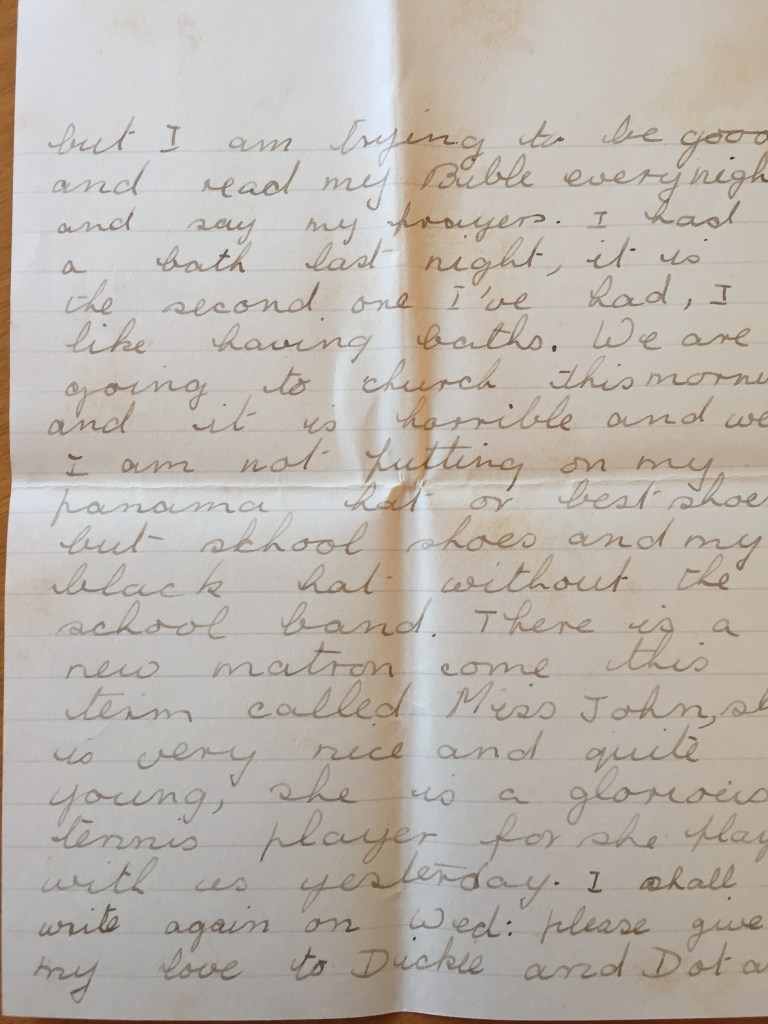 but I am trying to be good
and read my Bible every nigh
and say my prayers. I had
a bath last night, it is
the second one I've had, I
like having baths. We are
going to church this morni
and it is horrible and we
I am not putting on my
panama hat or best shoe
but school shoes and my
black hat without the
school band. There is a
new matron come this
term called Miss John, sh
is very nice and quite
young, she is a glorious
tennis player for she play
with us yesterday. I shall
write again on Wed: please give
my love to Dickie and Dot a